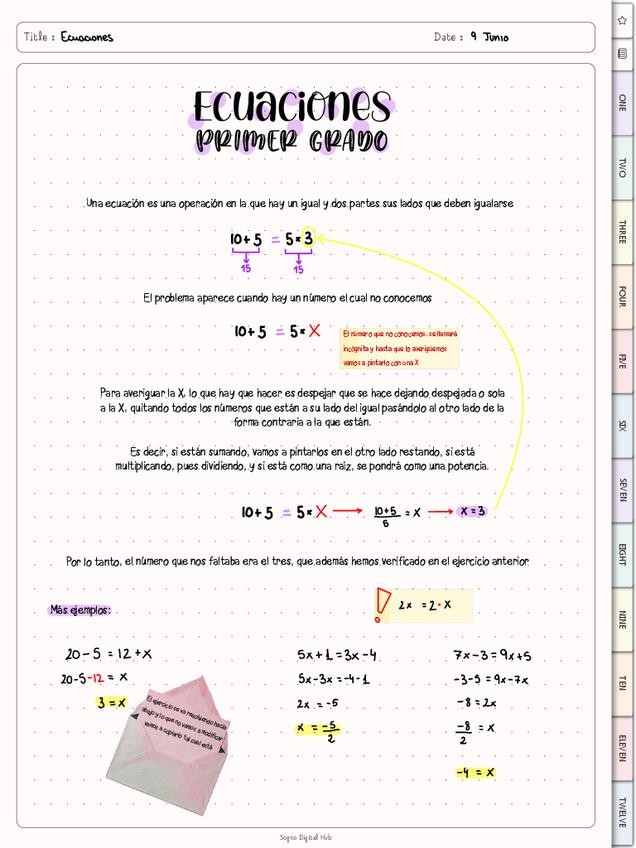 Title : Ecuaciones
Date : 9 Junio
Ecuaciones
PRIMER GRADO
Una ecuación es una operación en la que hay un igual y dos partes sus lados que deben igualarse
10+5 = 5*3
15 15
El problema aparece cuando hay un número el cual no conocemos
10+5 = 5*X
El número que no conocemos, se llamará
incógnita y hasta que lo averigüemos
vamos a pintarlo con una X
Para averiguar la X, lo que hay que hacer es despejar que se hace dejando despejada o sola
a la X, quitando todos los números que están a su lado del igual pasándolo al otro lado de la
forma contraria a la que están.
Es decir, si están sumando, vamos a pintarlos en el otro lado restando, si está
multiplicando, pues dividiendo, y si está como una raiz, se pondrá como una potencia.
10+5 = 5*X → 10+5/5 = X → X=3
Por lo tanto, el número que nos faltaba era el tres, que además hemos verificado en el ejercicio anterior
Más ejemplos:
2x = 2·X
20-5 = 12+X
20-5-12 = X
3 = X
El ejercicio se va resolviendo hacia
abajo y lo que no vamos a modificar
vamos a copiarlo tal cual está
5x+1=3x-4
5x-3x=-4-1
2x = -5
x = -5/2
7x-3=9x+5
-3-5 = 9x-7x
-8 = 2x
-8/2 = x
-4 = x
ONE
TWO
THREE
FOUR
FIVE
SIX
SEVEN
EIGHT
NINE
TEN
ELEVEN
TWELVE
Sogno Digital Hub